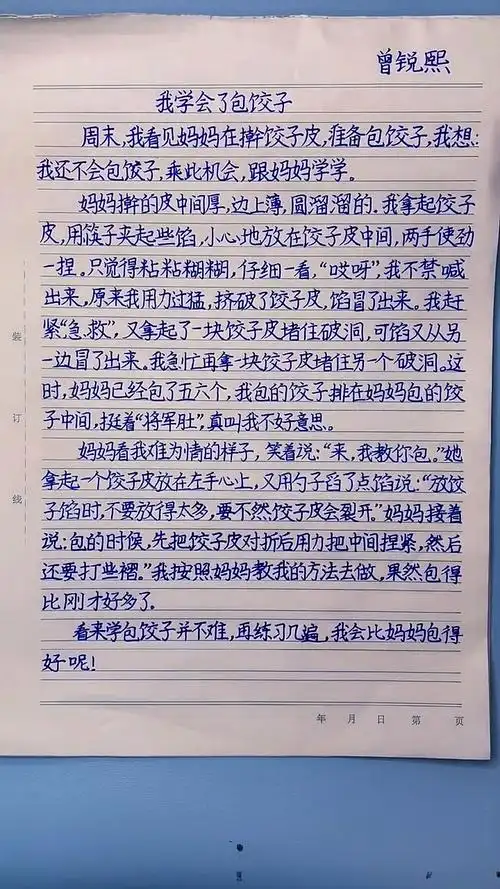 曾锐熙
我学会了包饺子
周末,我看见妈妈在擀饺子皮,准备包饺子,我想:
我还不会包饺子,乘此机会,跟妈妈学学。
妈妈擀的皮中间厚,边上薄,圆溜溜的.我拿起饺子
皮,用筷子夹起些馅,小心地放在饺子皮中间,两手使劲
一捏。只觉得粘粘糊糊,仔细一看,“哎呀”,我不禁喊
出来,原来我用力过猛,挤破了饺子皮,馅冒了出来。我赶
紧“急救”,又拿起了一块饺子皮堵住破洞,可馅又从另
一边冒了出来。我急忙再拿一块饺子皮堵住另一个破洞。这
时,妈妈已经包了五六个,我包的饺子排在妈妈包的饺
子中间,挺着“将军肚”,真叫我不好意思。
妈妈看我难为情的样子,笑着说:“来,我教你包。”她
拿起一个饺子皮放在左手心上,又用勺子舀了点馅说:“放饺
子馅时,不要放得太多,要不然饺子皮会裂开。”妈妈接着
说:包的时候,先把饺子皮对折后用力把中间捏紧,然后
还要打些褶。”我按照妈妈教我的方法去做,果然包得
比刚才好多了.
看来学包饺子并不难,再练习几遍,我会比妈妈包得
好呢!
装
订
线
年 月 日 第 页